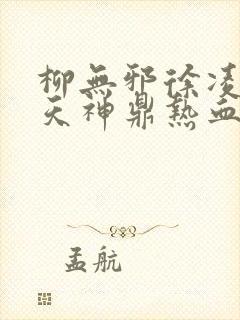 柳無邪徐凌
天神鼎熱血
孟航